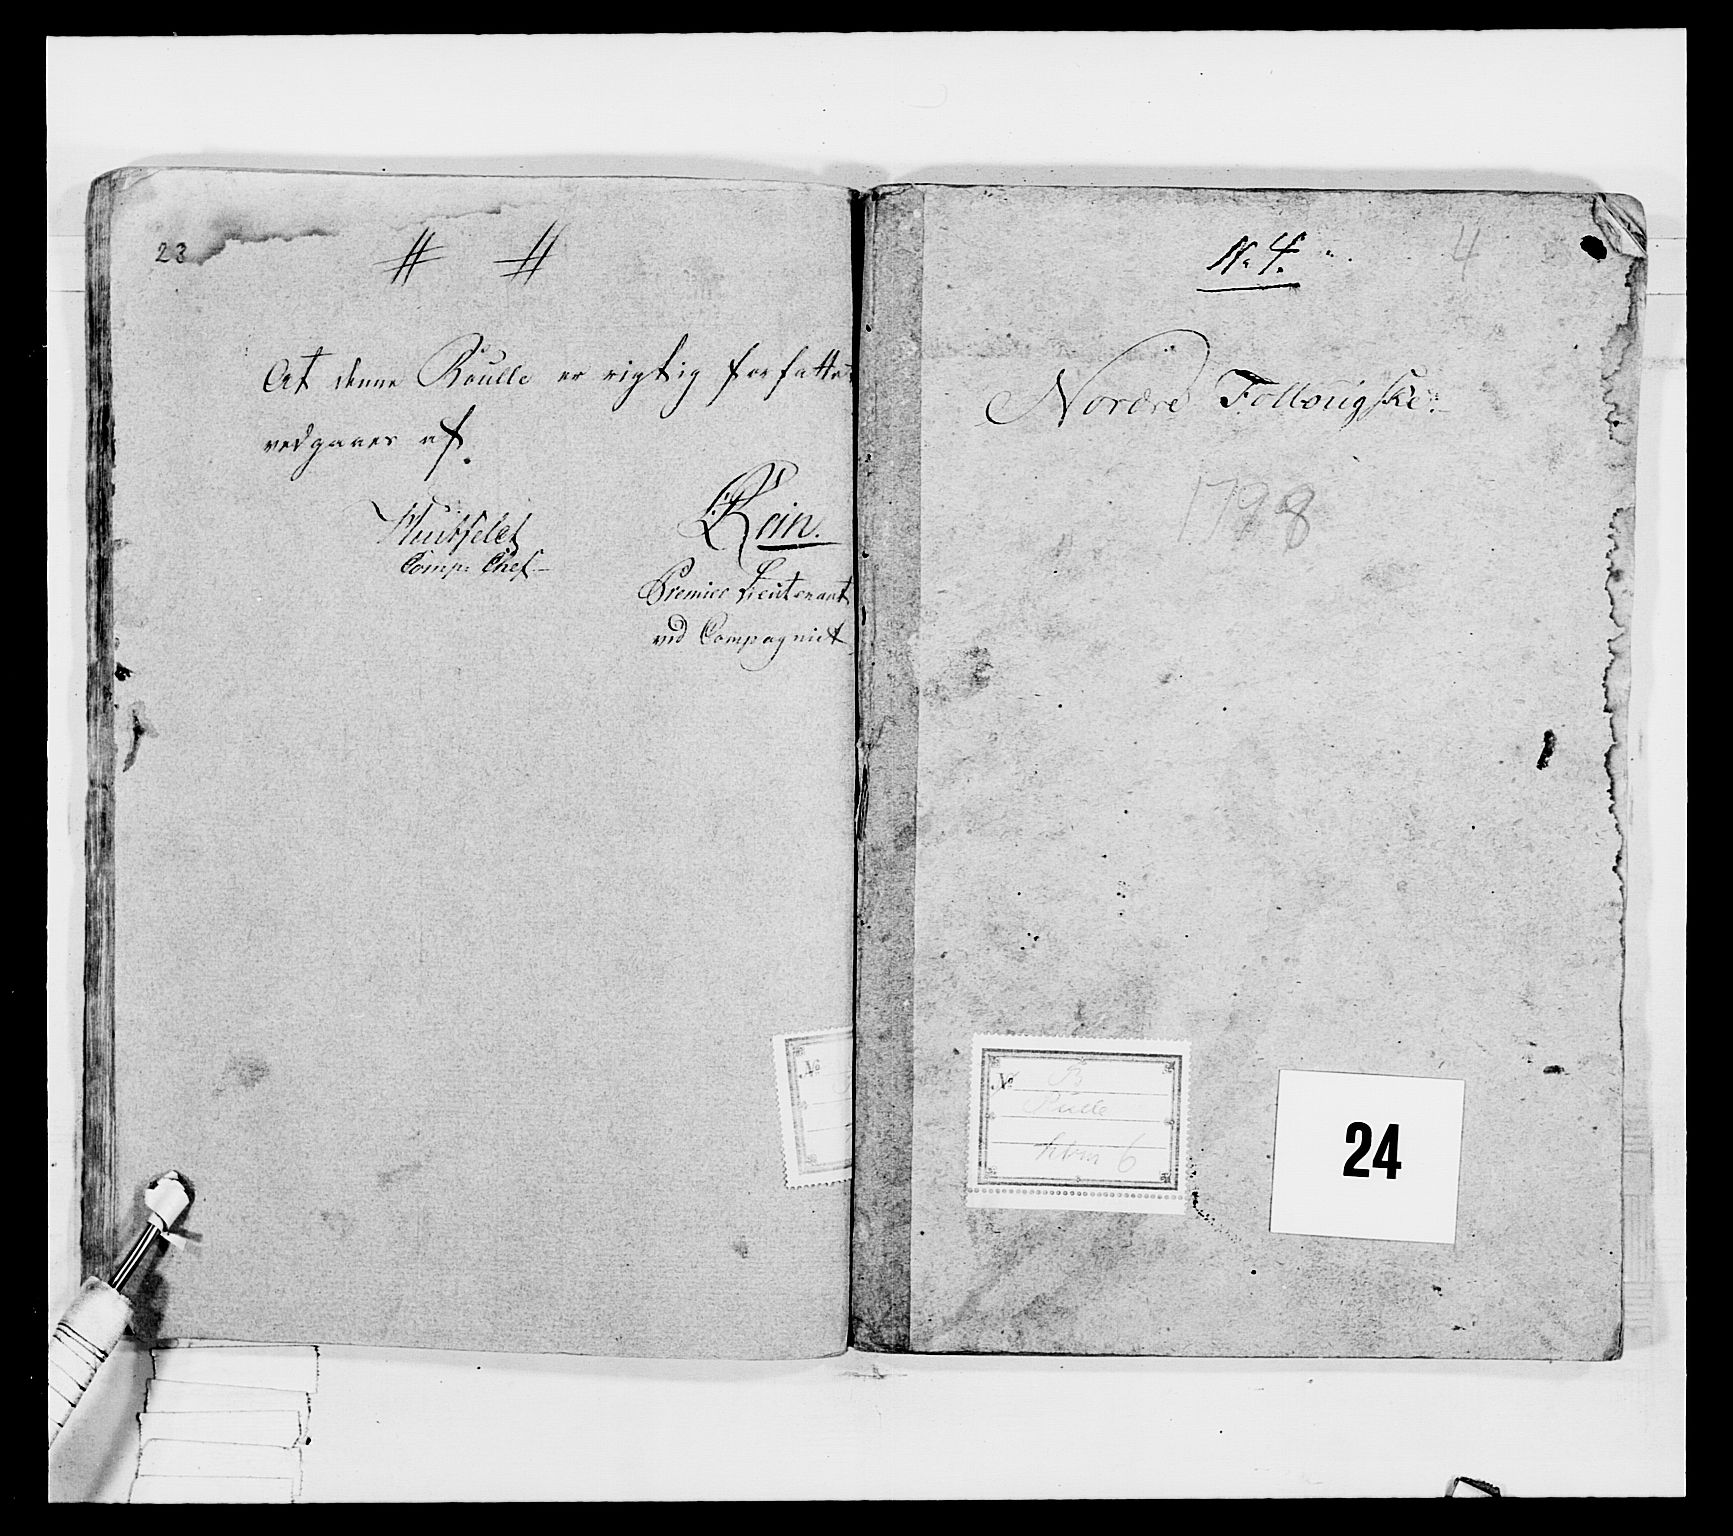 23
# #
At denne Roulle er rigtig forfattet
vedgaaer af.
Huitfeldt
Comp: Chef
Rein.
Premier Lieutenant
ved Compagniet
No
No. 4.
4
Nordre Follougske.
1798
No B
Rulle
hvm 6
24